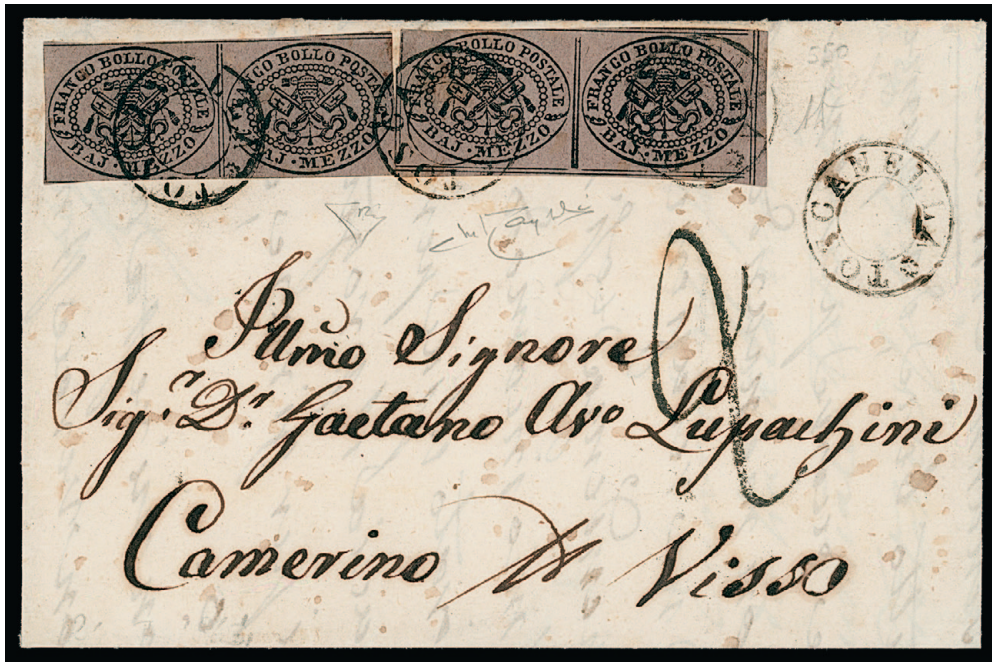 FRANCO BOLLO POSTALE BAJ · MEZZO
FRANCO BOLLO POSTALE BAJ · MEZZO
FRANCO BOLLO POSTALE BAJ · MEZZO
FRANCO BOLLO POSTALE BAJ · MEZZO
TOLCANELLA
2
Illmo Signore
Sigr. Dr. Gaetano Avo Lupachini
Camerino p Visso